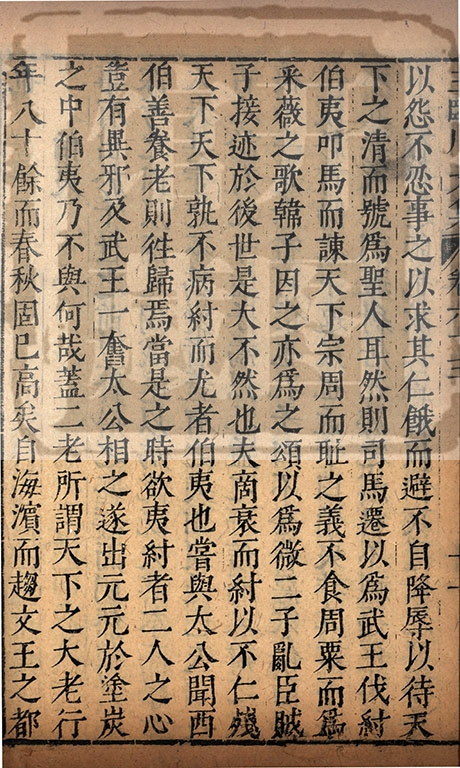 以怨不忍事之以求其仁餓而避不自降辱以待天
下之清而號爲聖人耳然則司馬遷以爲武王伐紂
伯夷叩馬而諫天下宗周而耻之義不食周粟而爲
采薇之歌韓子因之亦爲之頌以爲微二子亂臣賊
子接迹於後世是大不然也夫商衰而紂以不仁殘
天下天下孰不病紂而尤者伯夷也嘗與太公聞西
伯善養老則徃歸焉當是之時欲夷紂者二人之心
豈有異邪及武王一奮太公相之遂出元元於塗炭
之中伯夷乃不與何哉葢二老所謂天下之大老行
年八十餘而春秋固已高矣自海濱而趨文王之都